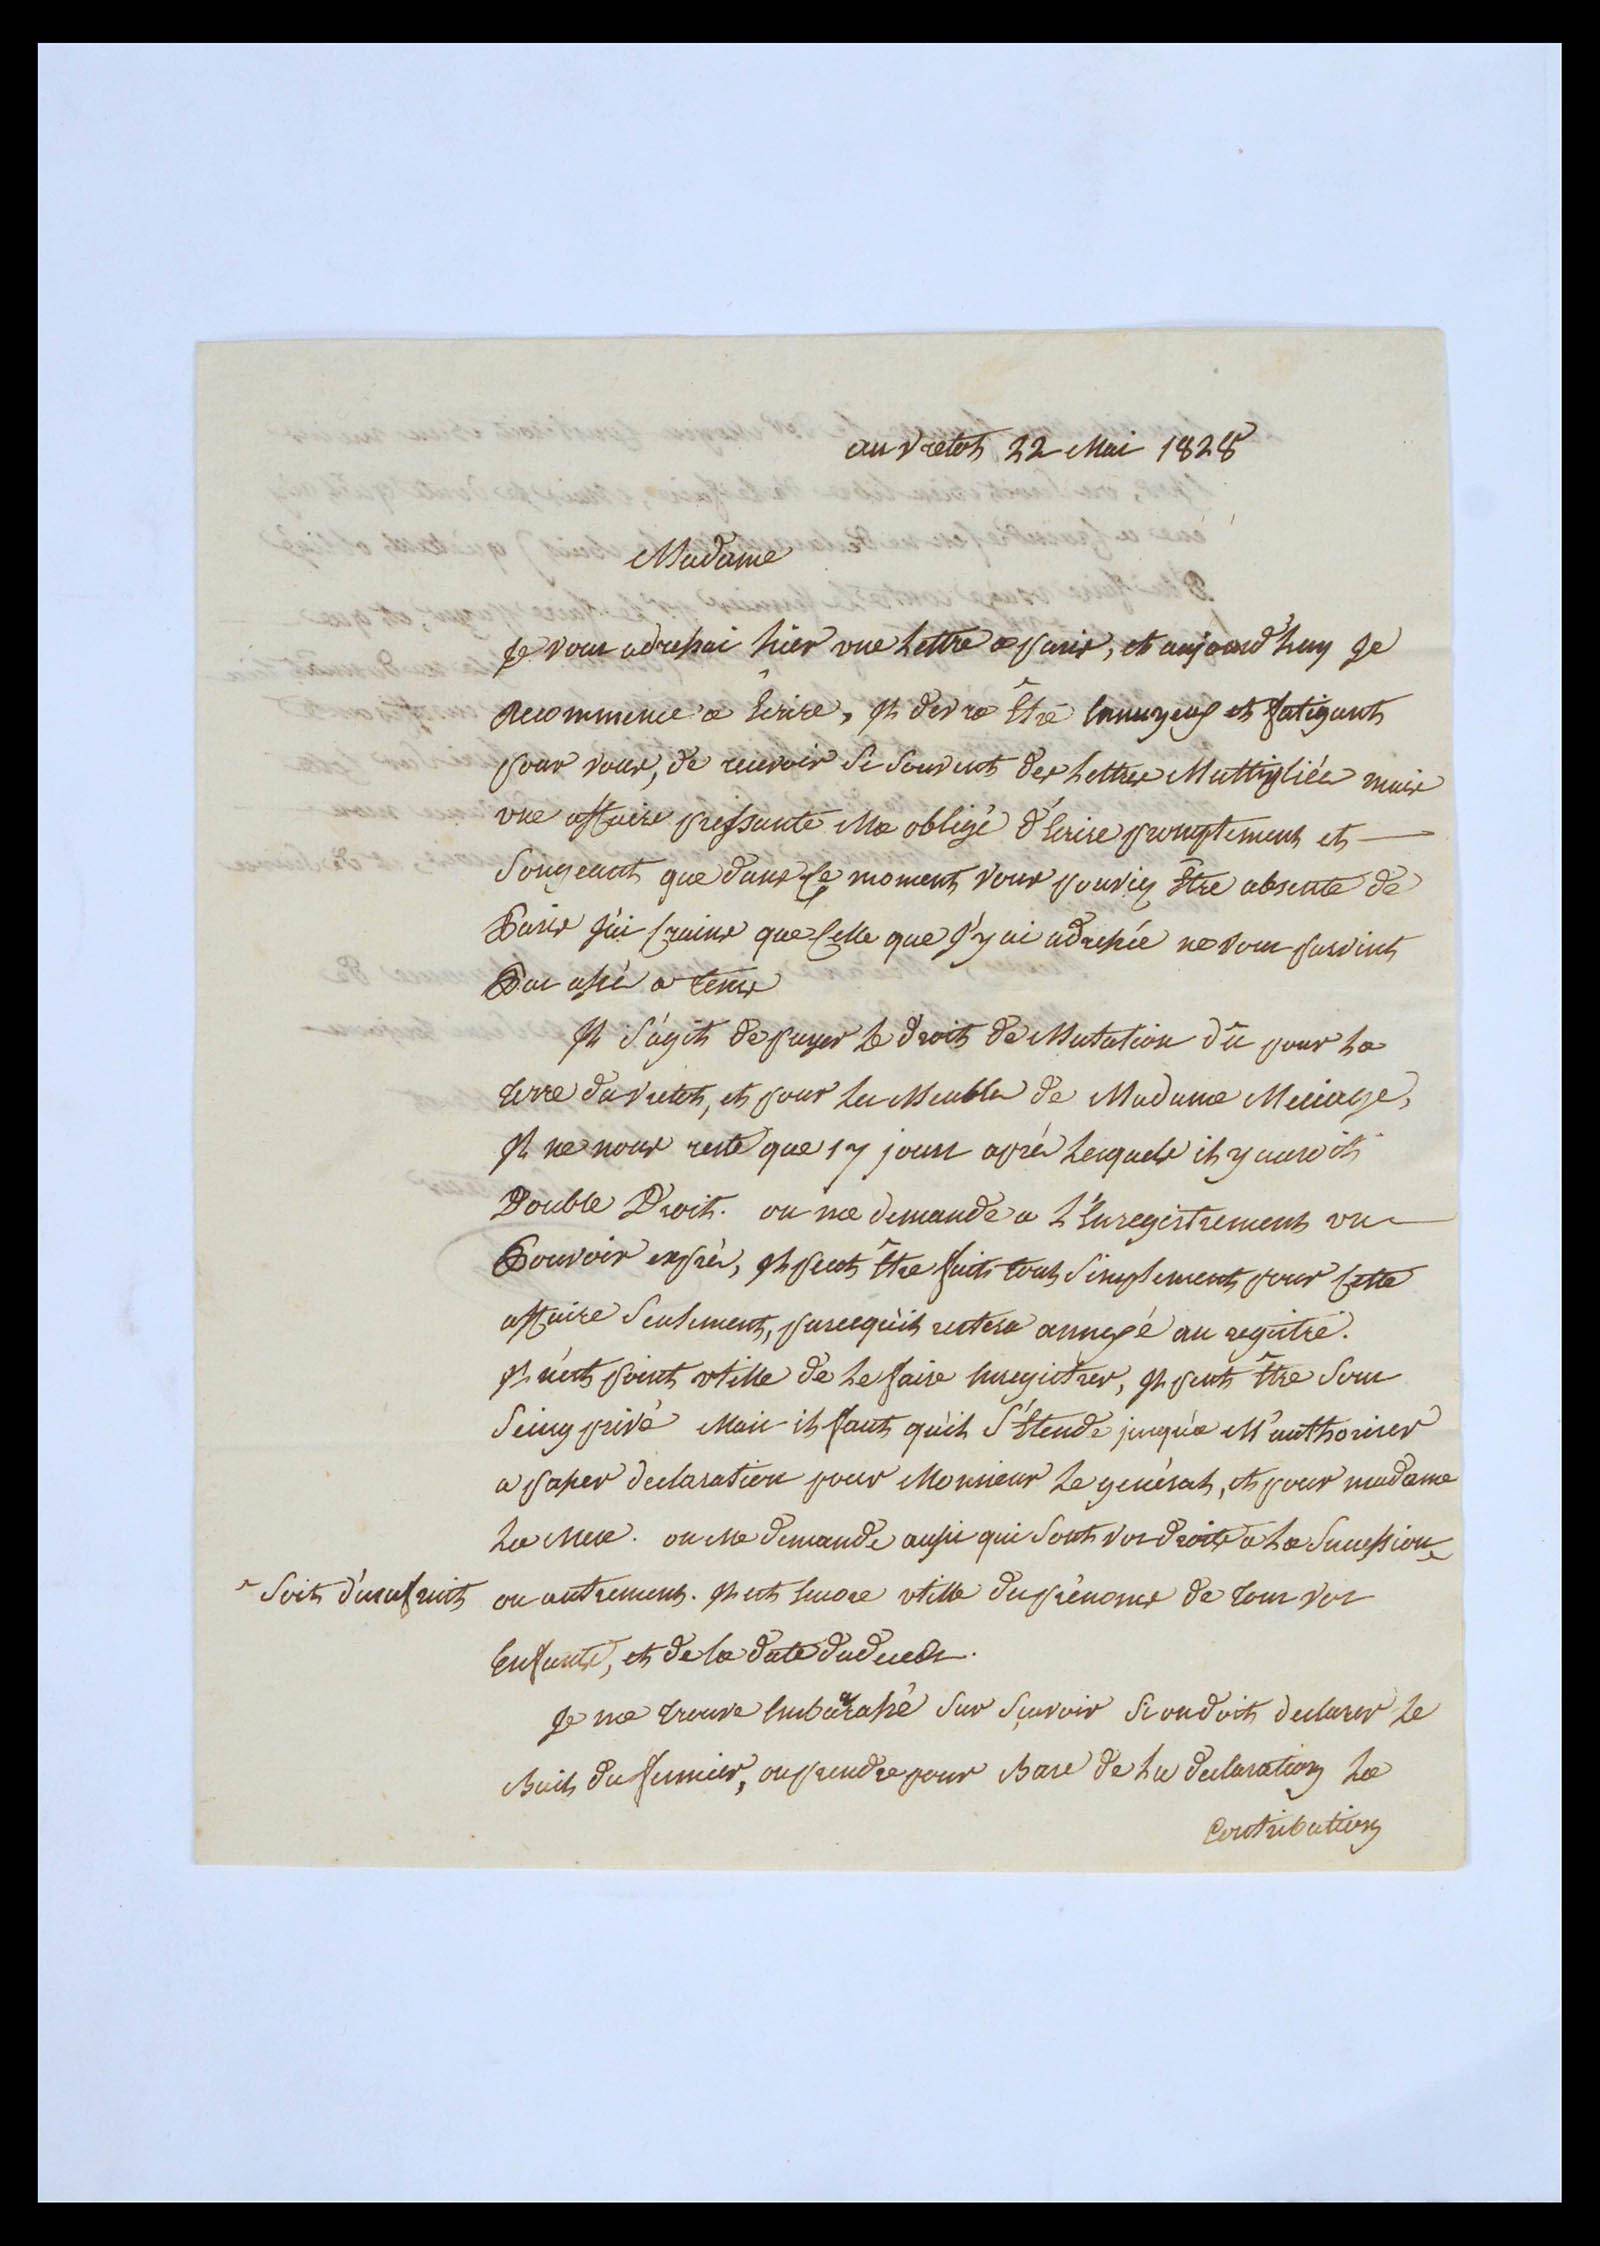 au vretot 22 Mai 1828
Madame
Je vous adressai hier une Lettre a paris, et aujourd'huy Je
Recommence a Ecrire, Il devra Être Ennuyeux et fatigant
pour vous, de recevoir Si Souvent des Lettres Multipliées mais
une affaire pressante Ma obligé d'Ecrire promptement et
Songeant que dans Ce moment Vous pouviez Être absente de
Paris J'ai Crains que Celle que J'y ai adressée ne vous parvint
Pas assés a tems
Il S'agit de payer Le droit de Mutation dû pour La
terre du vretot, et pour Les Meubles de Madame Meslage,
Il ne nous reste que 17 jours après Lesquels il y auroit
Double Droit. on me demande a L'Enregistrement un
Pouvoir exprès, Il peut Être fait tout Simplement pour Cette
affaire Seulement, parcequ'il restera annexé au registre.
Il n'est point utille de Le faire Enregistrer, Il peut Être Sous
Seing privé Mais il faut qu'il S'Etende jusqu'a M'authoriser
a passer declaration pour Monsieur Le général, et pour madame
La Mere. on Me demande aussi qui Sont Vos droits a La Sucession
Soit d'usufruit ou autrement. Il est Encore utille des prénoms de tous Vos
Enfants, et de la date du decès.
Je me trouve Embarassé Sur Sçavoir Si on doit declarer Le
Bail du fermier, ou prendre pour Base de La declaration La
Contribution